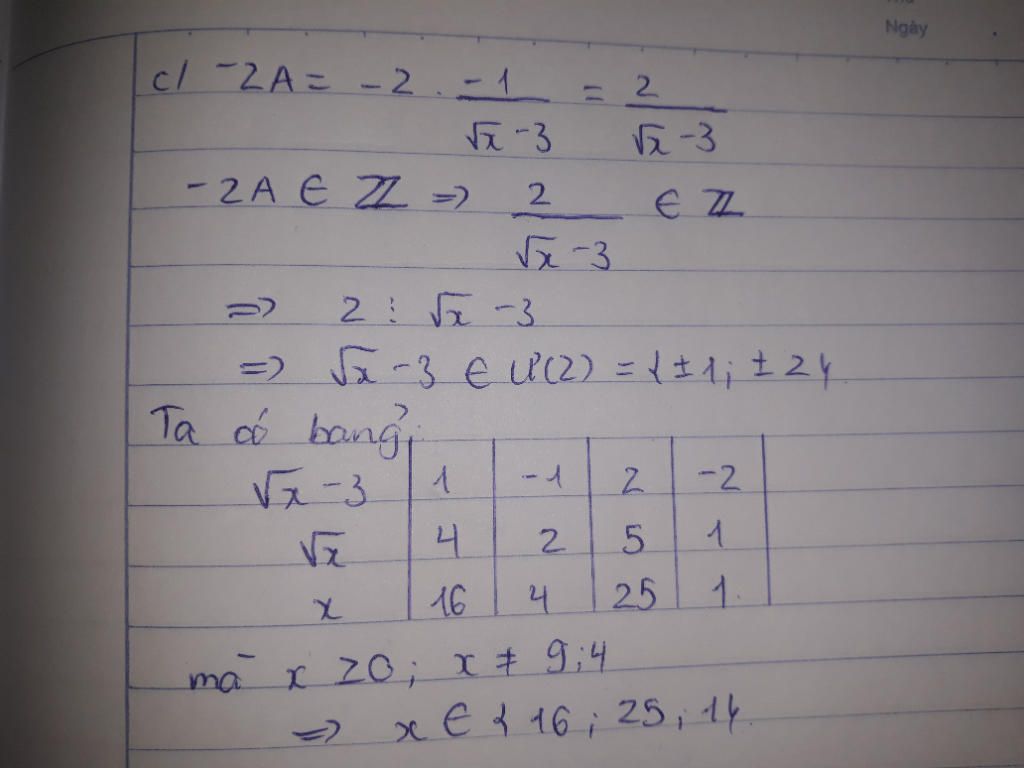 Ngày
c/ -2A = -2 . \frac{-1}{\sqrt{x} - 3} = \frac{2}{\sqrt{x} - 3}
-2A ∈ ℤ => \frac{2}{\sqrt{x} - 3} ∈ ℤ
=> 2 ⋮ √x - 3
=> √x - 3 ∈ Ư(2) = {±1; ±2}
Ta có bảng:
√x - 3 | 1 | -1 | 2 | -2
√x | 4 | 2 | 5 | 1
x | 16 | 4 | 25 | 1
mà x ≥ 0; x ≠ 9; 4
=> x ∈ {16; 25; 1}